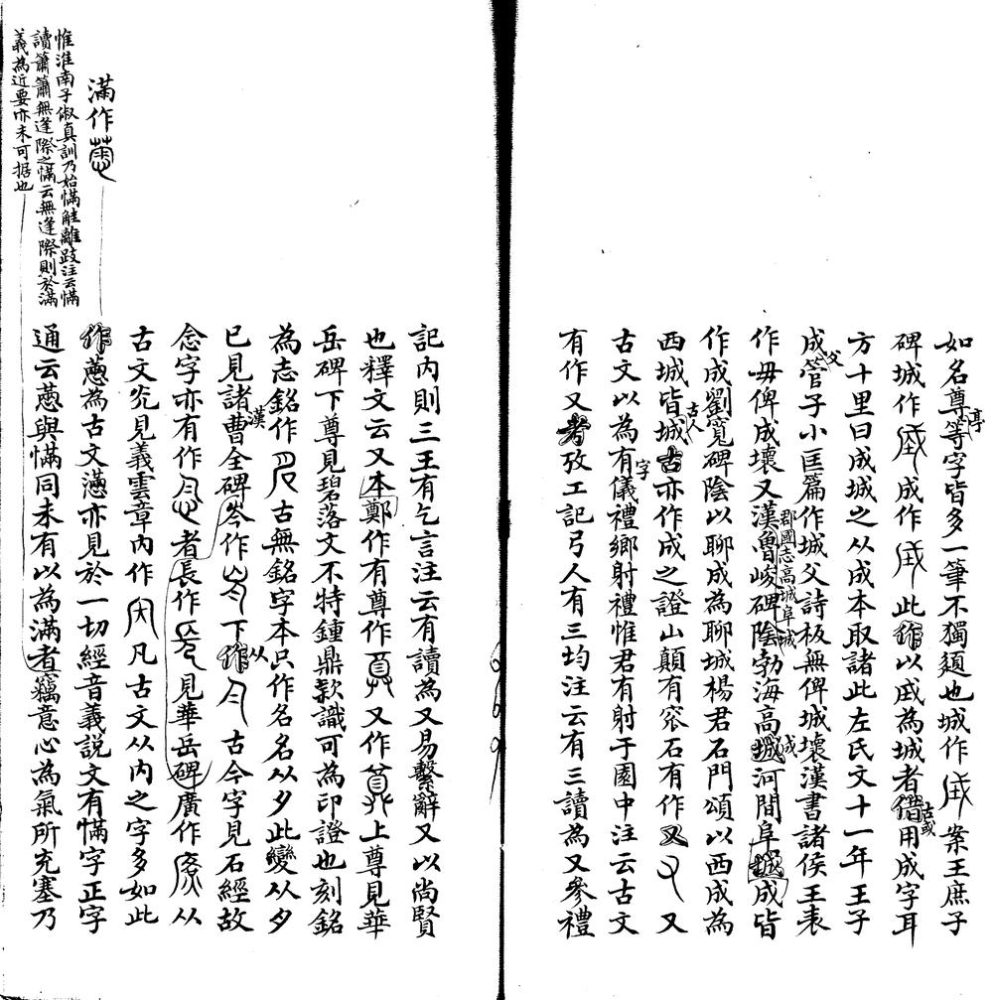 如名尊亭等字皆多一筆不獨題也城作案王庶子
碑城作成作此作以成為城者古或借用成字耳
方十里曰成城之从成本取諸此左氏文十一年王子
成父管子小匡篇作城父詩板無俾城壞漢書諸侯王表
作毋俾成壞又漢魯峻碑陰勃海高成河間阜成皆
郡國志高城阜城
作成劉寬碑陰以聊成為聊城楊君石門頌以西成為
西城皆古人城字亦作成之證山顛有容石有作又
古文以為有儀禮鄉射禮惟君有射于國中注云古文
有作又攷工記弓人有三均注云有三讀為又參禮
記內則三王有乞言注云有讀為又易繫辭又以尚賢
也釋文云又本鄭作有尊作又作上尊見華
岳碑下尊見碧落文不特鐘鼎款識可為印證也刻銘
為志銘作古無銘字本只作名名从夕此變从夕
已見諸漢曹全碑岑作下从今古今字見石經故
念字亦有作者長作見華岳碑廣作从
古文灮見義雲章內作凡古文从內之字多如此
滿作
作懣為古文懣亦見於一切經音義說文有懣字正字
通云懣與慲同未有以為滿者竊意心為氣所充塞乃
惟淮南子俶真訓乃始慲觟離跂注云慲
讀簫簫無逢際之慲云無逢際則於滿
義為近要亦未可据也